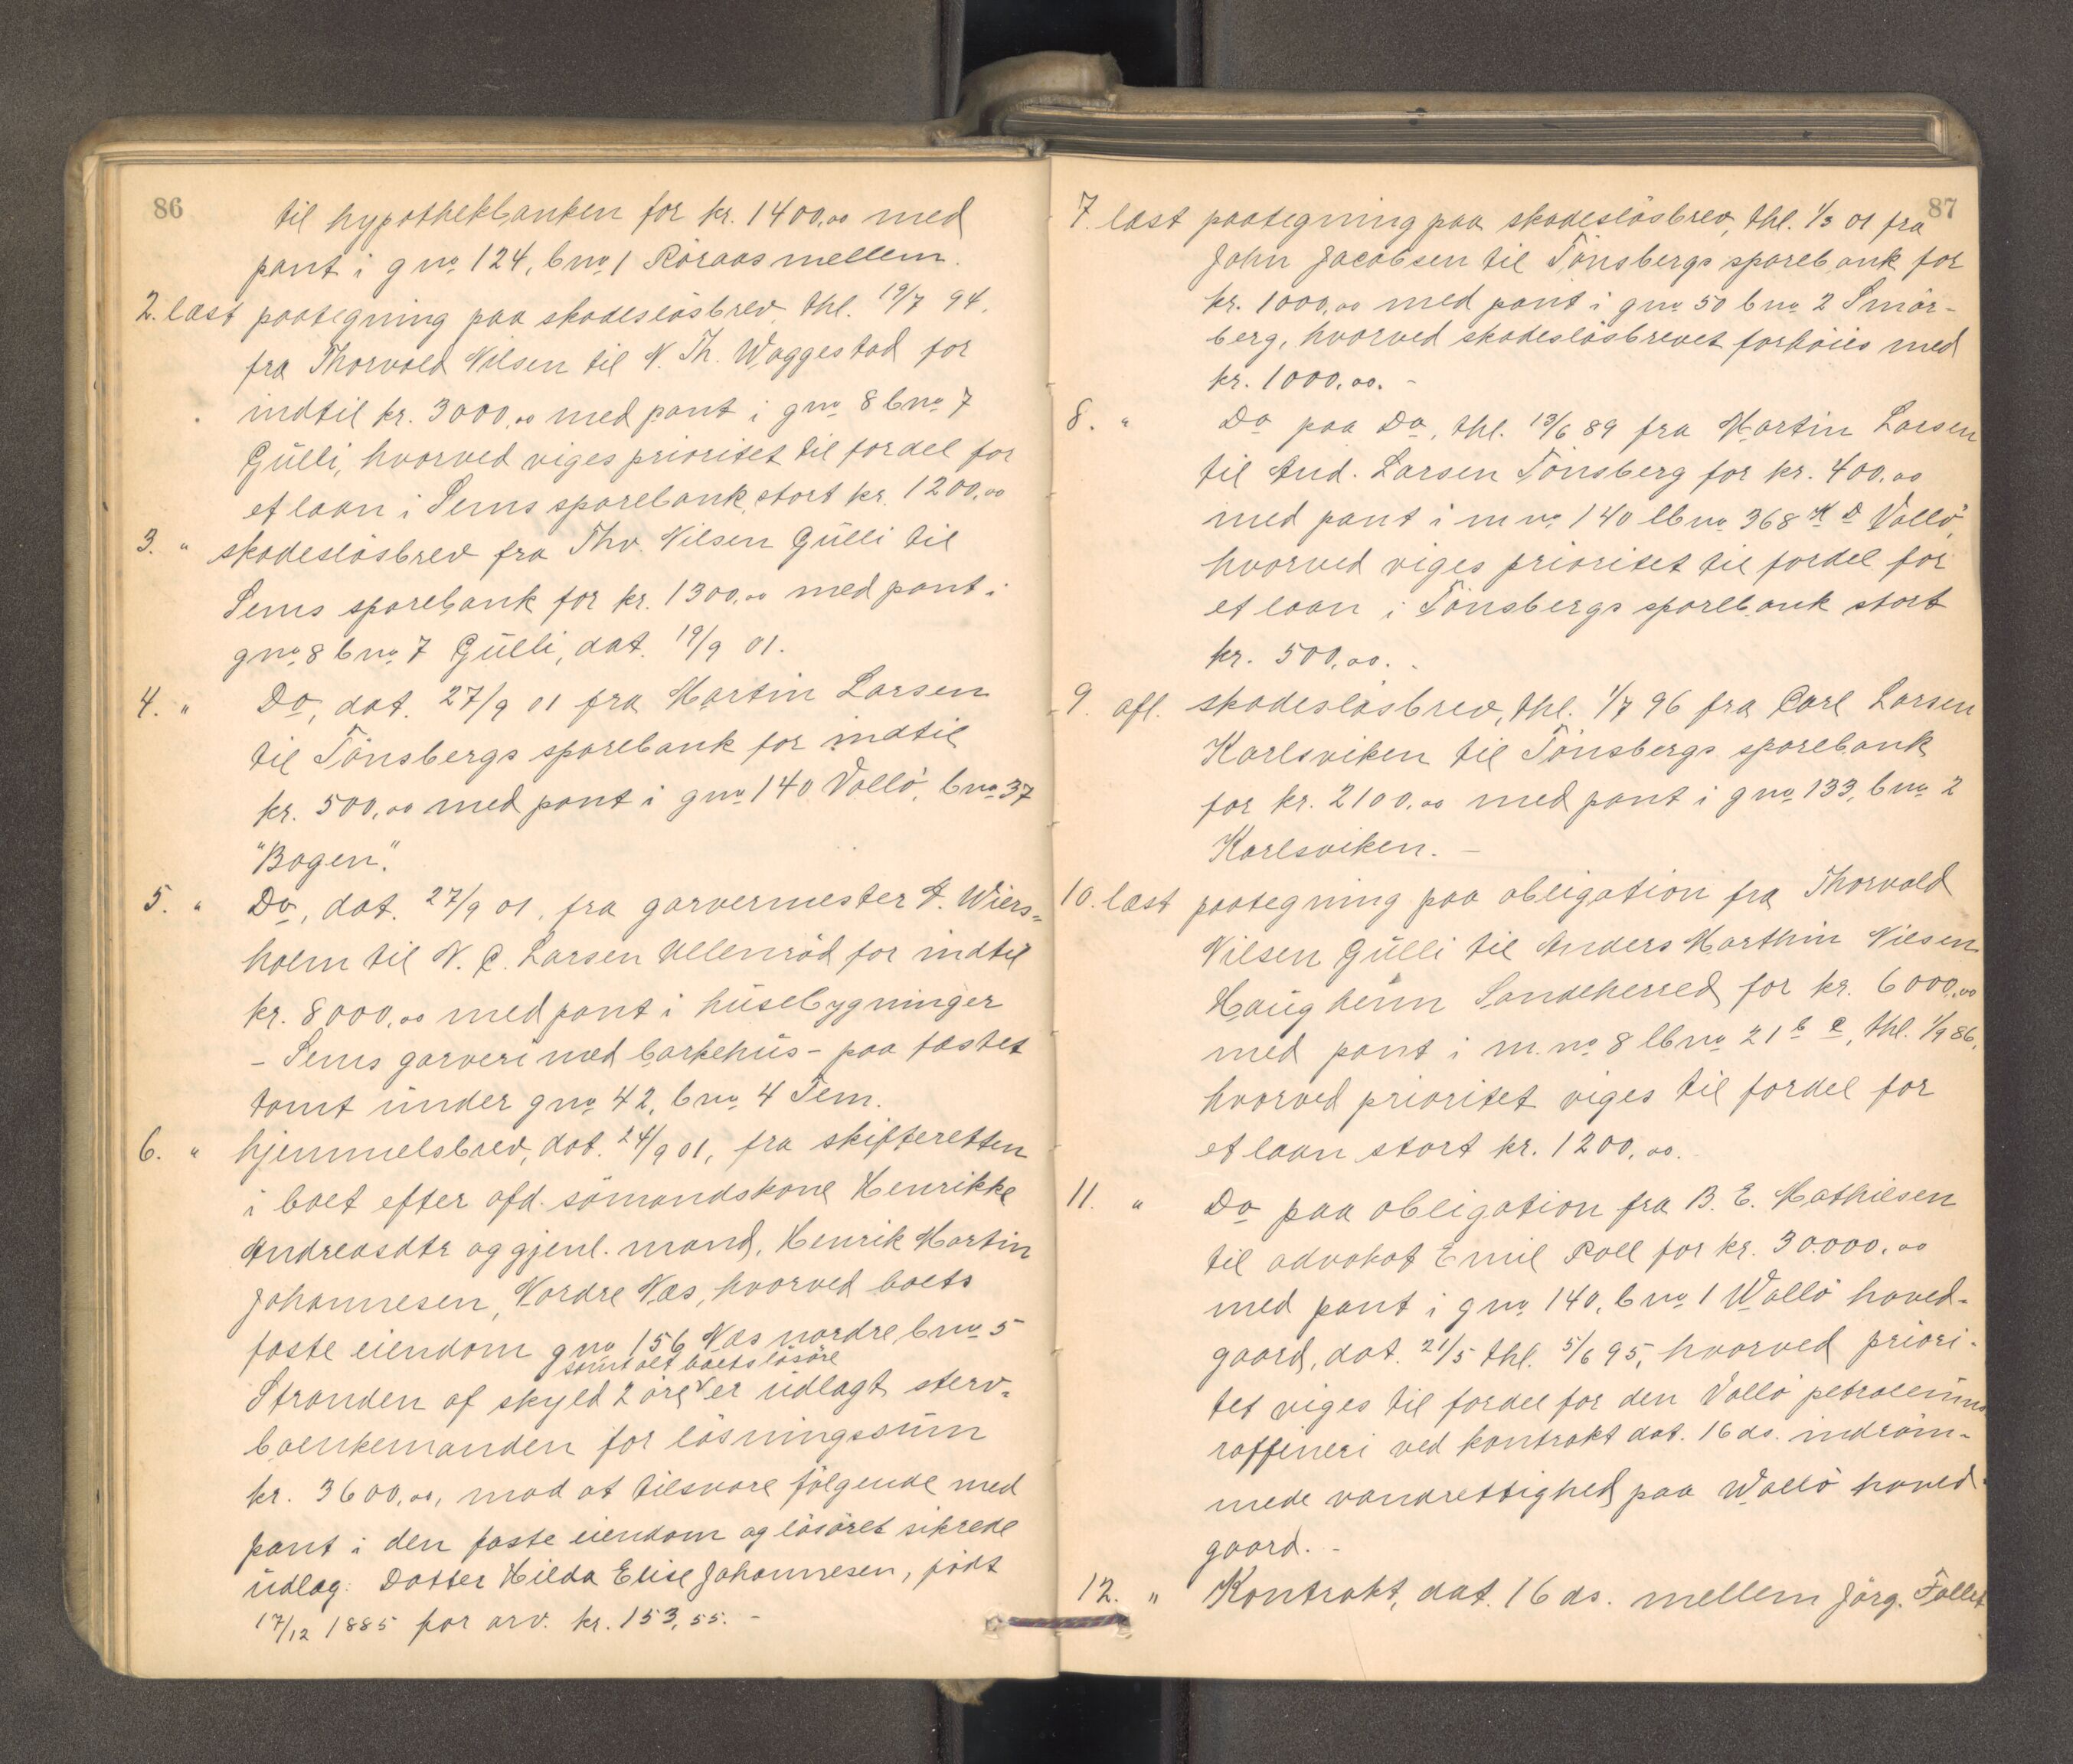 86
til hypothekbanken for kr. 1400,00 med
pant i gno. 124, bno. 1 Röraas mellem.
2. læst paategning paa skadeslösbrev, thl. 19/7 94,
fra Thorvald Nilsen til N. Th. Waggestad for
indtil kr. 3000,00 med pant i gno. 8 bno. 7
Gülli, hvorved viges prioritet til fordel for
et laan i Sems sparebank, stort kr. 1200,00
3. " skadeslösbrev fra Thv. Nilsen Gülli til
Sems sparebank for kr. 1300,00 med pant i
gno. 8 bno. 7 Gülli, dat. 19/9 01.
4. " Do, dat. 27/9 01 fra Martin Larsen
til Tönsbergs sparebank for indtil
kr. 500,00 med pant i gno. 140 Vallö, bno. 37
"Bogen".
5. " Do, dat. 27/9 01, fra garvermester A. Wiers=
holm til N. C. Larsen Ullenröd for indtil
kr. 8000,00 med pant i hüsebygninger
- Sems garveri med barkehüs - paa fæstet
tomt ünder gno. 42, bno. 4 Sem.
6. " hjemmelsbrev, dat. 24/9 01, fra skifteretten
i boet efter afd. sömandskone Henrikke
Andreasdtr og gjenl. mand, Henrik Martin
Johannesen, Nordre Næs, hvorved boets
faste eiendom gno. 156 Næs nordre, bno. 5
samt alt boets lösöre
Stranden af skyld 2 öre v er üdlagt sterv-
boenkemanden for lösningssüm
kr. 3600,00, mod at tilsvare fölgende med
pant i den faste eiendom og lösöret sikrede
üdlæg: Datter Hilda Elise Johannesen, födt
17/12 1885 for arv. kr. 153,55. -
87
7. læst paategning paa skadeslösbrev, thl. 1/3 01 fra
John Jacobsen til Tönsbergs sparebank for
kr. 1000,00 med pant i gno. 50 bno. 2 Smör-
berg, hvorved skadeslösbrevet forhöies med
kr. 1000,00. -
8. " Do paa Do, thl. 13/6 89 fra Martin Larsen
til And. Larsen Tönsberg for kr. 400,00
med pant i mno. 140 lbno. 368 H D Vallö,
hvorved viges prioritet til fordel for
et laan i Tönsbergs sparebank stort
kr. 500,00. -
9. afl. skadeslösbrev, thl. 1/7 96 fra Carl Larsen
Karlsviken til Tönsbergs sparebank
for kr. 2100,00 med pant i gno. 133, bno. 2
Karlsviken. -
10. læst paategning paa obligation fra Thorvald
Nilsen Gülli til Anders Marthin Nilsen
Haügheim Sandeherred for kr. 6000,00
med pant i m.no. 8 lbno. 21 b c, thl. 1/9 86,
hvorved prioritet viges til fordel for
et laan stort kr. 1200,00.
11. " Do paa obligation fra B. E. Mathiesen
til advokat Emil Roll for kr. 30.000,00
med pant i gno. 140, bno. 1 Wallö hoved-
gaard, dat. 21/5 thl. 5/6 95, hvorved priori-
tet viges til fordel for den Vallö petroleüms
raffineri ved kontrakt dat. 16 ds. indröm-
mede vandrettighed paa Wallö hoved-
gaard. -
12. " Kontrakt, dat. 16 ds. mellem Jörg. Fallet